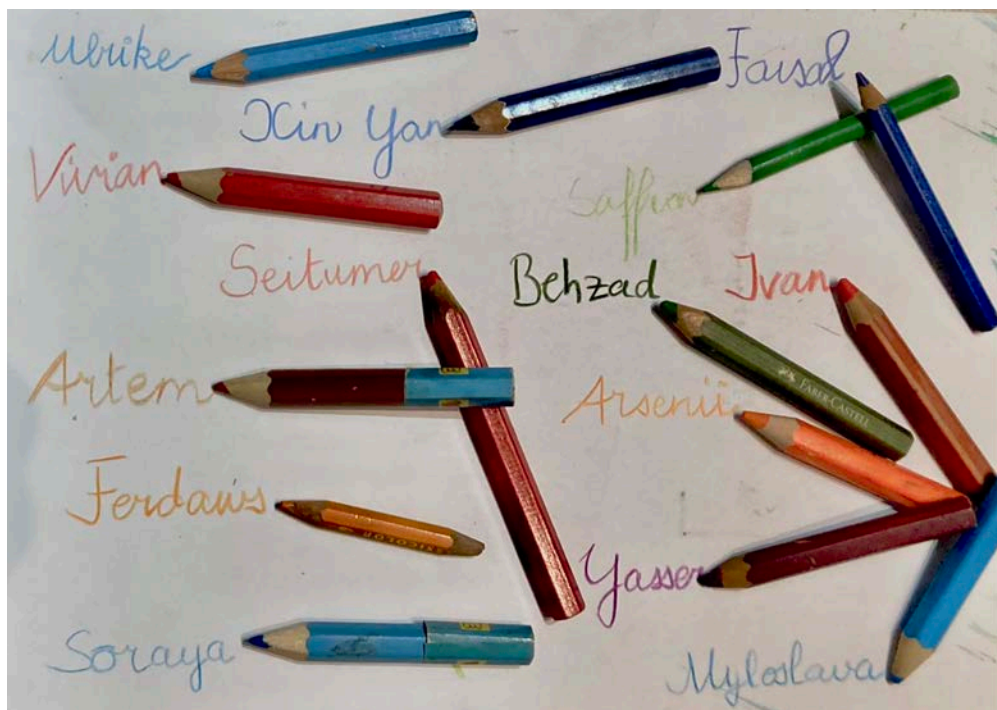 Ulrike
Xin Yan
Faisal
Vivian
Saffron
Seitumer
Behzad
Ivan
Artem
Arsenii
FABER-CASTELL
Ferdaws
Yasser
Soraya
Myloslava